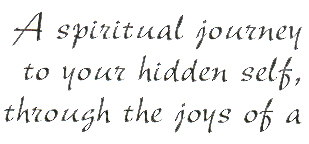 A spiritual journey
to your hidden self,
through the joys of a